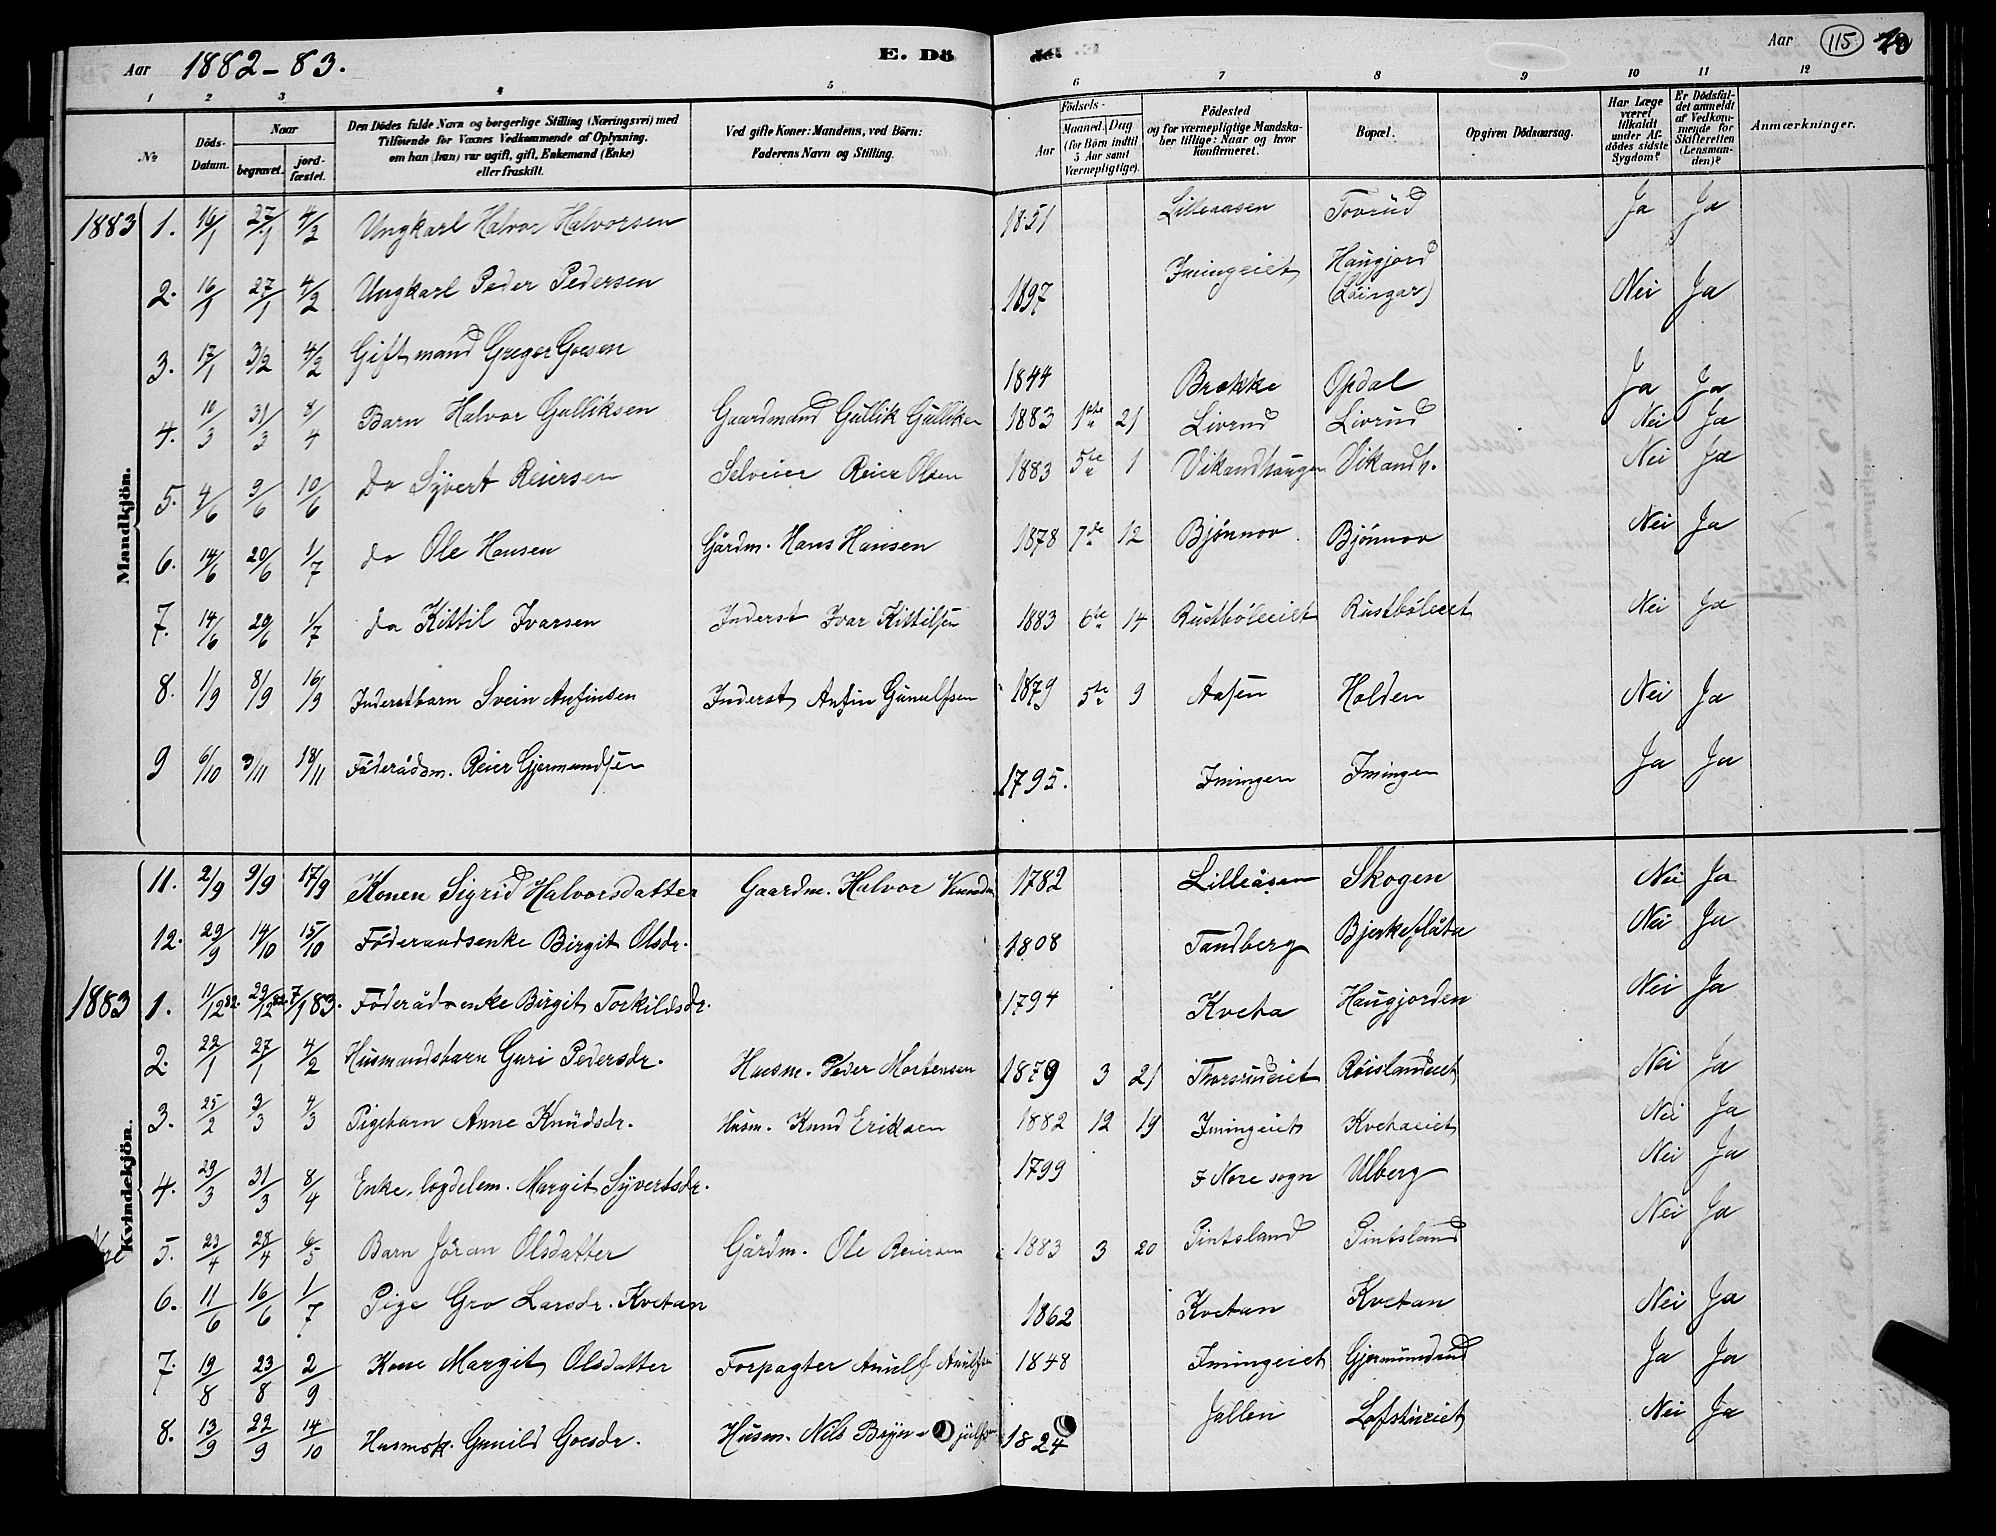 Aar 1882-83. E. Dö
de. Aar 115
1 2 3 4 5 6 7 8 9 10 11 12
No
Döds-Datum.
Naar
begravet.
jord-fæstet.
Den Dödes fulde Navn og borgerlige Stilling (Næringsvei) med
Tilföiende for Voxnes Vedkommende af Oplysning,
om han (hun) var ugift, gift, Enkemand (Enke)
eller fraskilt.
Ved gifte Koner: Mandens, ved Börn:
Faderens Navn og Stilling.
Födsels-
Aar
Maaned. Dag
(for Börn indtil
5 Aar samt
Værnepligtige).
Födested
og for værnepligtige Mandska-
ber tillige: Naar og hvor
konfirmeret.
Bopæl.
Opgiven Dödsaarsag.
Har Læge
været
tilkaldt
under Af-
dödes sidste
Sygdom?
Er Dödsfal-
det anmeldt
af Vedkom-
mende for
Skifteretten
(Lensman-
den)?
Anmærkninger.
Mandkjön.
1883 1. 16/1 27/1 4/2 Ungkarl Halvor Halvorsen 1851 Lilleaasen Tovrud Ja Ja
2. 16/1 27/1 4/2 Ungkarl Peder Pedersen 1897 Imingeiet Haugjord Nei Ja
3. 17/1 3/2 4/2 Gift mand Greger Goesen 1844 Brekke Opdal Ja Ja
4. 10/3 31/3 8/4 Barn Halvor Gulliksen Gaardmand Gullik Gulliksen 1883 1ste 21 Livrud Livrud Nei Ja
5. 4/6 9/6 10/6 do Syvert Reiersen Selveier Reier Olsen 1883 5te 1 Vikandhaugen Vikandh. Nei Ja
6. 14/6 20/6 1/7 do Ole Hansen Gårdm. Hans Hansen 1878 7de 12 Bjönnov Bjönnov Nei Ja
7. 14/6 20/6 1/7 do Kittil Ivarsen Inderst Ivar Kittilsen 1883 6te 14 Rustböleeiet Rustböleeiet Nei Ja
8. 1/9 8/9 16/9 Inderstbarn Svein Anfinsen Inderst Anfin Gunulfsen 1879 5te 9 Aasen Holden Nei Ja
9 6/10 3/11 18/11 Föderådsm. Reier Gjermundsen 1795. Imingen Imingen Ja Ja
Kvindekjön.
11. 2/9 9/9 17/9 Konen Sigrid Halvorsdatter Gaardm. Halvor 1782 Lilleåsen Skogen Nei Ja
12. 29/9 14/10 15/10 Föderaadsenke Birgit Olsdr. 1808 Tandberg Bjerkeflåta Nei Ja
1883 1. 11/12 82. 29/12 82. 7/1 83. Föderådsenke Birgit Torkildsdr. 1794 Kveta Haugjorden Nei Ja
2. 22/1 27/1 4/2 Husmandsbarn Guri Pedersdr. Husm. Peder Mortensen 1879 3 21 Thorsrudeiet Röislandeiet Nei Ja
3. 25/2 3/3 4/3 Pigebarn Anne Knudsdr. Husm. Knud Eriksen 1882 12 19 Imingeiet Kvetaeiet Nei Ja
4. 29/3 31/3 8/4 Enke, lægdelem. Margit Syvertsdr. 1799 I Nore sogn Ulberg Nei Ja
5. 23/4 28/4 6/5 Barn Jöran Olsdatter Gårdm. Ole Reiersen 1883 3 20 Pintsland Pintsland Nei Ja
6. 11/6 16/6 1/7 Pige Gro Larsdr. Kvetan 1862 Kvetan Kvetan Nei Ja
7. 19/8 23/8 2/9 Kone Margit Olsdatter Forpagter Anulf Anulfsen 1848 Imingeiet Gjermundrud Ja Ja
8. 13/9 22/9 14/10 Husmsk. Gunild Goesdr. Husm. Nils 1824 Jallen Lofsturiet Nei Ja